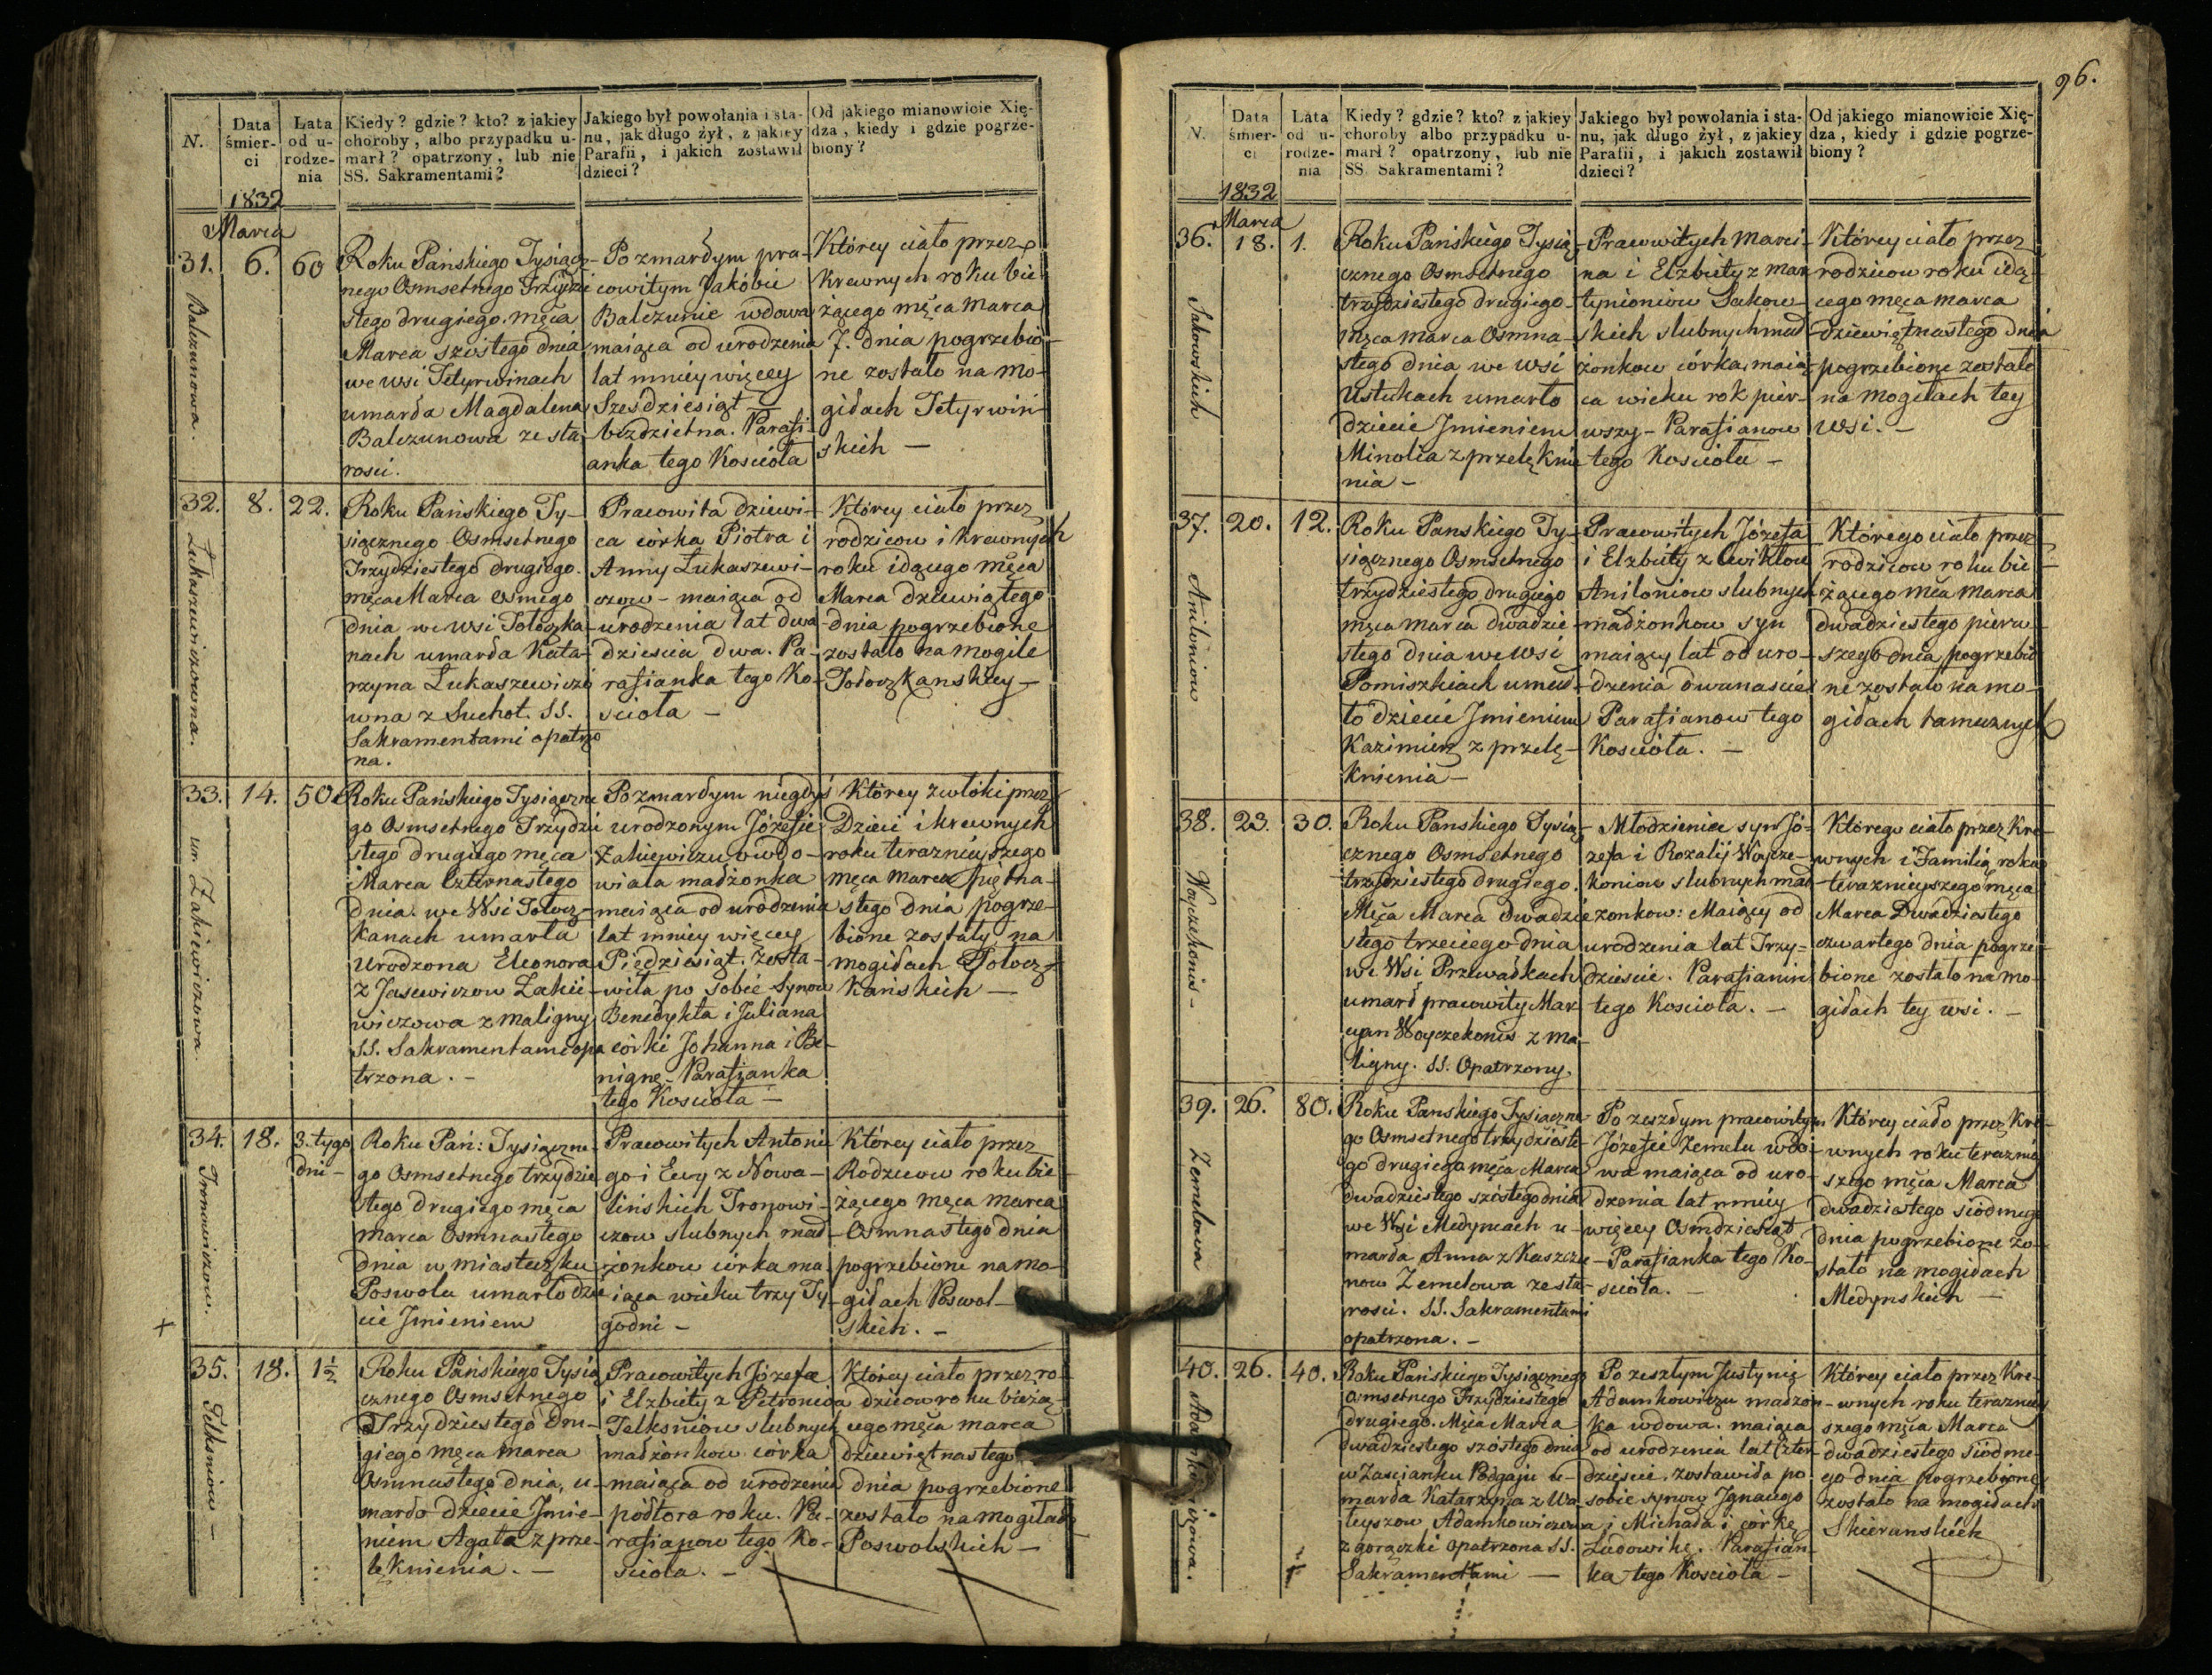 96.
N.
Data śmierci
Lata od urodzenia
Kiedy? gdzie? kto? z jakiey
choroby, albo przypadku u-
marł? opatrzony, lub nie
SS. Sakramentami?
Jakiego był powołania i sta-
nu, jak długo żył, z jakiey
Parafii, i jakich zostawił
dzieci?
Od jakiego mianowicie Xię-
dza, kiedy i gdzie pogrze-
biony?
1832
Marca
31.
6.
60
Balczunowa.
Roku Pańskiego Tysiącz-
nego Osmsetnego Trzydzie
stego drugiego. męca
Marca szóstego dnia
we wsi Tetyrwinach
umarła Magdalena
Balczunowa ze sta
rosci.
Po zmarłym pra-
cowitym Jakóbie
Balczunie wdowa
maiąca od urodzenia
lat mniey więcey
Szesdziesiąt –
bezdzietna. Parafi-
anka tego Kościoła
Którey ciało przez
krewnych roku bie
żącego męca Marca
7. dnia pogrzebio-
ne zostało na mo-
giłach Tetyrwiń-
skich –
32.
8.
22.
Łukaszewiczowna.
Roku Pańskiego Ty-
siącznego Osmsetnego
Trzydziestego drugiego.
męca Marca osmego
dnia we wsi Tołoczka-
nach umarła Kata-
rzyna Łukaszewiczo
wna z Suchot. SS.
Sakramentami opatrzo
na.
Pracowita dziewi-
ca córka Piotra i
Anny Łukaszewi-
czow – maiąca od
urodzenia lat dwa
dziescia dwa. Pa-
rafianka tego Ko-
scioła –
Którey ciało przez
rodzicow i krewnych
roku idącego męca
Marca dziewiątego
dnia pogrzebione
zostało na mogile
Tołoczkanskiey –
33.
14.
50.
ur. Zakiewiczowa
Roku Pańskiego Tysiączne
go Osmsetnego Trzydzie
stego drugiego męca
Marca Czternastego
dnia. we Wsi Tołocz-
kanach umarła
Urodzona Eleonora
z Jasewiczow Zakie-
wiczowa z maligny
SS. Sakramentami opa
trzona. –
Po zmarłym niegdyś
urodzonym Józefie
Zakiewiczu owdo-
wiała małżonka
maiąca od urodzenia
lat mniey więcey
Pięćdziesiąt. Zosta-
wiła po sobie Synow
Benedykta i Juliana
córki Johanna i Be-
nignę – Parafianka
tego Kościoła –
Którey zwłóki przez
Dzieci i krewnych
roku teraznieyszego
męca Marca piętna-
stego dnia pogrze-
bione zostały na
mogiłach Tołocz-
kańskich –
34.
18.
3. tygo
dni –
Tronowiczow.
Roku Pań: Tysiączne-
go Osmsetnego trzydzie
stego drugiego męca
marca Osmnastego
dnia w miasteczku
Poswolu umarło dzie
cie Jmieniem
Pracowitych Antonie
go i Ewy z Nowa-
lińskich Tronowi-
czow slubnych mał-
żonkow córka ma
iąca wieku trzy Ty-
godni –
Którey ciało przez
Rodzicow roku bie
żącego męca marca
Osmnastego dnia
pogrzebione na mo-
giłach Poswol-
skich. –
35.
18.
1½
Telksniow –
Roku Pańskiego Tysią
cznego Osmsetnego
Trzydziestego dru-
giego męca marca
Osmnastego dnia, u-
marło dziecie Jmie-
niem Agata z prze-
lęknienia. –
Pracowitych Józefa
i Elzbiety z Petronioa
Telksniow slubnych
małżonkow córka
maiąca od urodzenia
półtora roku. Pa-
rafianow tego Ko-
scioła. –
Którey ciało przez ro-
dzicow roku bieżą-
cego męca marca
dziewiętnastego
dnia pogrzebione
zostało na mogiłach
Poswolskich –
N.
Data śmierci
Lata od urodzenia
Kiedy? gdzie? kto? z jakiey
choroby albo przypadku u-
marł? opatrzony, lub nie
SS. Sakramentami?
Jakiego był powołania i sta-
nu, jak długo żył, z jakiey
Parafii, i jakich zostawił
dzieci?
Od jakiego mianowicie Xię-
dza, kiedy i gdzie pogrze-
biony?
1832
Marca
36.
18.
1.
Sakowskich
Roku Pańskiego Tysią-
cznego Osmsetnego
trzydziestego drugiego
męca marca Osmna-
stego dnia we wsi
Ustukach umarło
dziecie Jmieniem
Minolia z przelęknie
nia –
Pracowitych Marci-
na i Elzbiety z Mar
tynioniow Sakow-
skich slubnych mał
żonkow córka, maią
ca wieku rok pier-
wszy – Parafianow
tego Kościoła –
Którey ciało przez
rodzicow roku idą-
cego męca marca
dziewiętnastego dnia
pogrzebione zostało
na mogiłach tey
wsi. –
37.
20.
12.
Aniloniow
Roku Panskiego Ty-
siącznego Osmsetnego
trzydziestego drugiego
męca marca dwadzie-
stego dnia we wsi
Pomiszkiach umar-
ło dziecie Jmieniem
Kazimierz z przelę-
knienia –
Pracowitych Józefa
i Elzbiety z Cwiklow
Aniloniow slubnych
małżonkow syn
maiący lat od uro-
dzenia dwanaście
Parafianow tego
Kościoła. –
Którego ciało przez
rodzicow roku bie-
żącego męca marca
dwadziestego pierw-
szego dnia pogrzebio
ne zostało na mo-
giłach tamecznych
38.
23.
30.
Woyczekonis –
Roku Panskiego Tysią-
cznego Osmsetnego
trzydziestego drugiego.
Męca Marca dwadzie
stego trzeciego dnia
we Wsi Przewałkach
umarł pracowity Mar
cyan Woyczekonis z ma-
ligny. SS. Opatrzony.
Młodzieniec syn Jó-
zefa i Rozalij Woycze-
koniow slubnych mał
zonkow: Maiący od
urodzenia lat Trzy-
dziescie. Parafianin
tego Kosciola. –
Którego ciało przez Kre-
wnych i Familią roku
teraznieyszego męca
Marca Dwadziestego
czwartego dnia pogrze-
bione zostało na mo-
giłach tey wsi. –
39.
26.
80.
Zemelowa
Roku Panskiego Tysiączne
go Osmsetnego trzydzieste
go drugiego męca Marca
dwadziestego szóstego dnia
we Wsi Medynicach u-
marła Anna z Kaszcze
now Zemelowa ze sta-
rosci. SS. Sakramentami
opatrzona. –
Po zeszłym pracowitym
Józefie Zemelu wdo-
wa maiąca od uro-
dzenia lat mniey
więcey Osmdziesiąt
– Parafianka tego Ko-
scioła. –
Którey ciało przez Kre-
wnych roku teraznie
szego męca Marca
dwadziestego siódmego
dnia pogrzebione zo-
stało na mogiłach
Medynskich –
40.
26.
40.
Roku Pańskiego Tysiącznego
Osmsetnego Trzydziestego
drugiego. Męca Marca
dwadziestego szóstego dnia
w Zascianku Podgaju u-
marła Katarzyna z Wa-
leyszow Adamkowiczowa
z gorączki opatrzona SS.
Sakramentami –
Po zeszłym Justynie
Adamkowiczu małżon-
ka wdowa. maiąca
od urodzenia lat Czter-
dziescie, zostawiła po
sobie synow Ignacego
i Michała i córkę
Ludowikę. Parafian-
ka tego Kościoła –
Którey ciało przez Kre-
wnych roku terazniey
szego męca Marca
dwadziestego siódme-
go dnia pogrzebione
zostało na mogiłach
Skieranskich